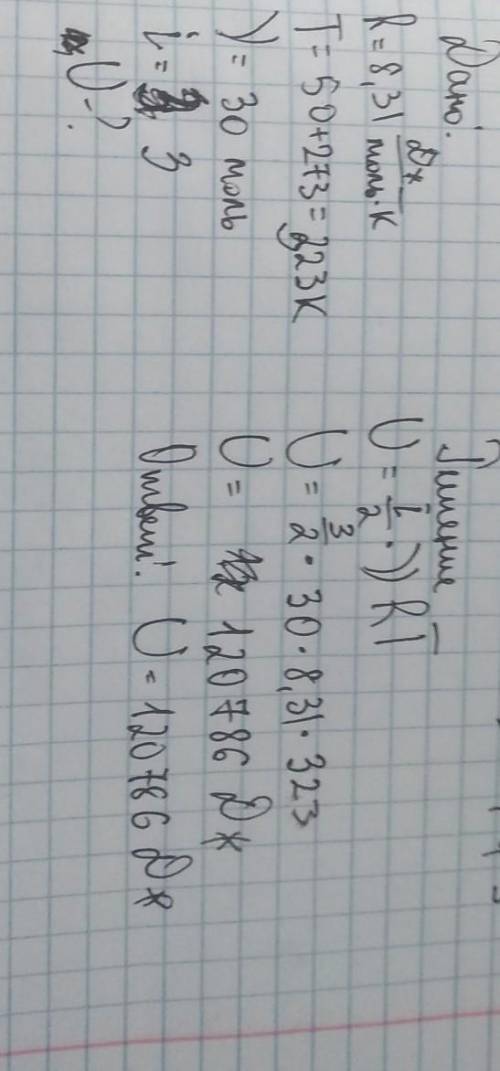 Дано:
R = 8,31 Дж/моль·К
T = 50+273 = 323К
ν = 30 моль
i = 3
U - ?
Решение
U = i/2 · νRT
U = 3/2 · 30 · 8,31 · 323
U = 120786 Дж
Ответ: U = 120786 Дж